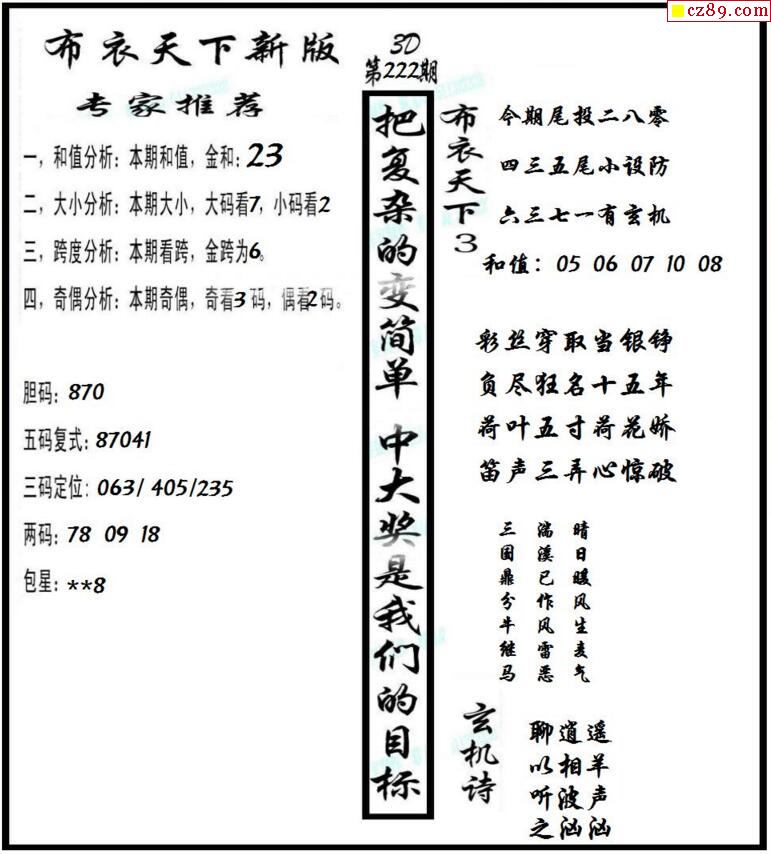 cz89.com
布衣天下新版
专家推荐
一，和值分析：本期和值，金和：23
二，大小分析：本期大小，大码看7，小码看2
三，跨度分析：本期看跨，金跨为6。
四，奇偶分析：本期奇偶，奇看3码，偶看2码。
胆码：870
五码复式：87041
三码定位：063/ 405/235
两码：78 09 18
包星：**8
3D
第222期
把复杂的变简单 中大奖是我们的目标
布衣天下3
今期尾投二八零
四三五尾小设防
六三七一有玄机
和值：05 06 07 10 08
彩丝穿取当银铮
负尽狂名十五年
荷叶五寸荷花娇
笛声三弄心惊破
晴日暖风生麦气
湍溪已作风雷恶
三国鼎分牛继马
玄机诗
聊逍遥
以相羊
听波声
之汹汹